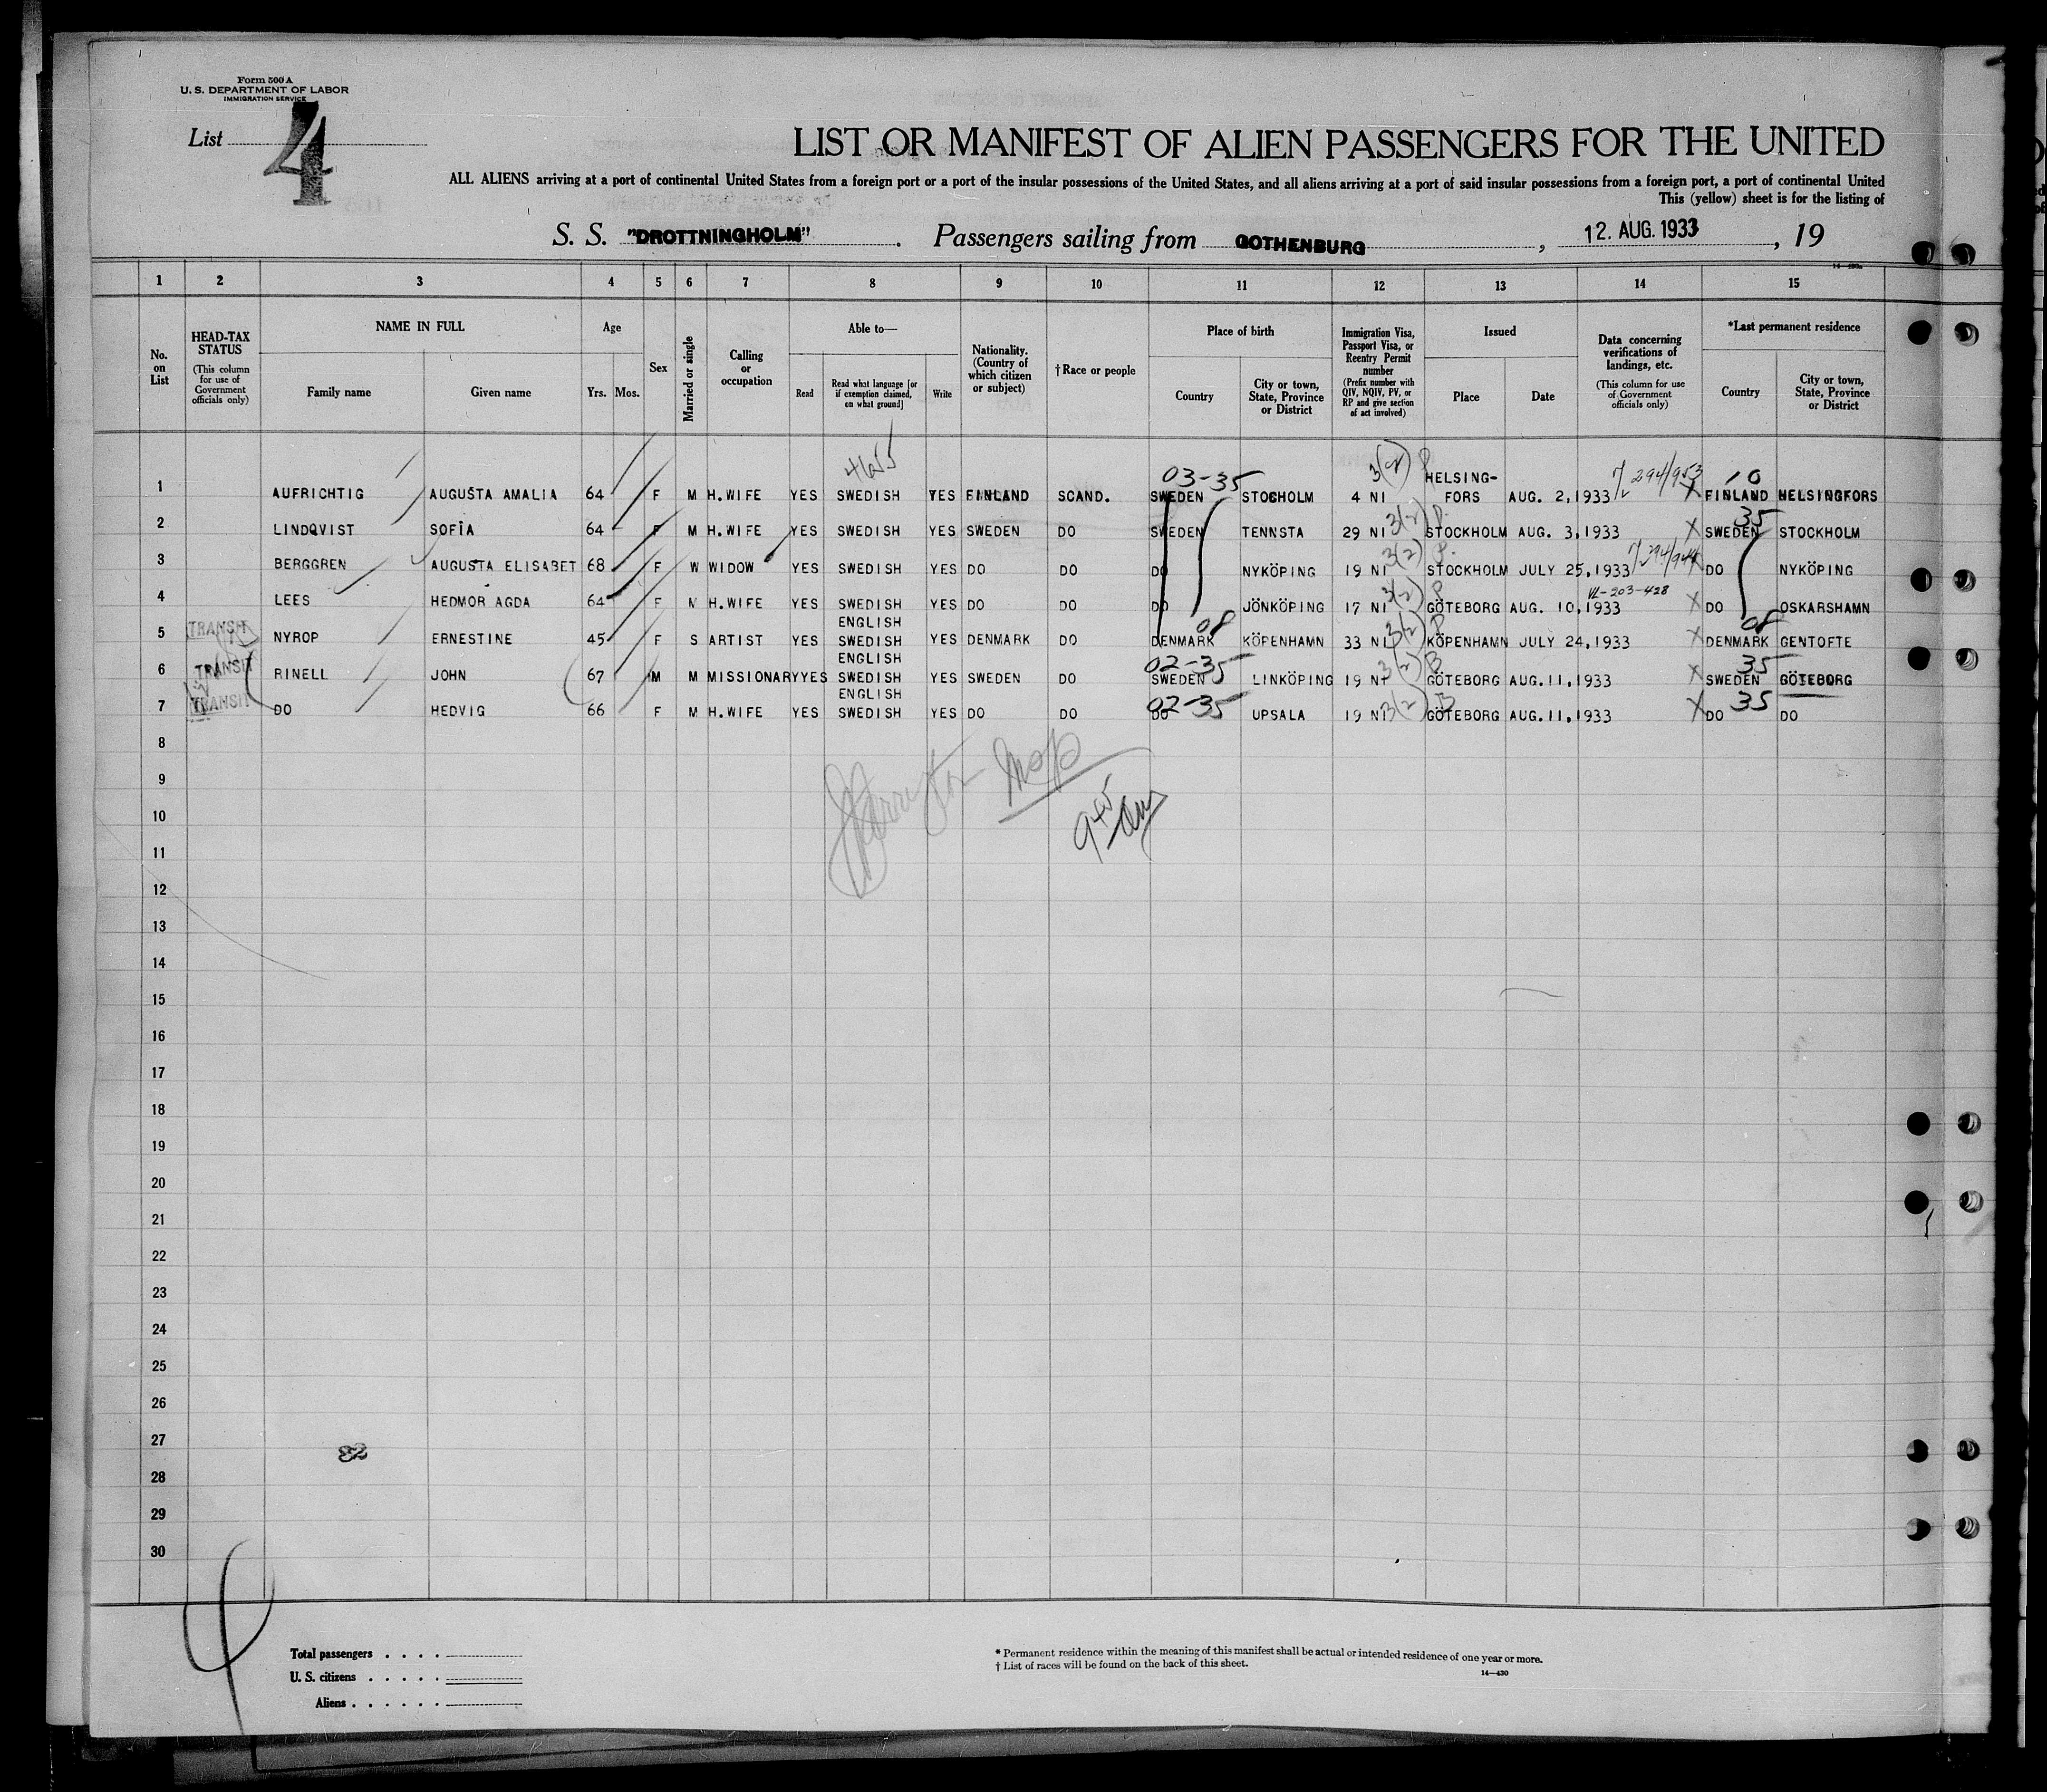 Form 500 A
U. S. DEPARTMENT OF LABOR
IMMIGRATION SERVICE
List 4
LIST OR MANIFEST OF ALIEN PASSENGERS FOR THE UNITED
ALL ALIENS arriving at a port of continental United States from a foreign port or a port of the insular possessions of the United States, and all aliens arriving at a port of said insular possessions from a foreign port, a port of continental United
This (yellow) sheet is for the listing of
S. S. "DROTTNINGHOLM". Passengers sailing from GOTHENBURG, 12. AUG. 1933, 19
1 2 3 4 5 6 7 8 9 10 11 12 13 14 15
No. on List
HEAD-TAX STATUS (This column for use of Government officials only)
NAME IN FULL
Family name
Given name
Age
Yrs. Mos.
Sex
Married or single
Calling or occupation
Able to—
Read
Read what language [or if exemption claimed, on what ground]
Write
Nationality. (Country of which citizen or subject)
†Race or people
Place of birth
Country
City or town, State, Province or District
Immigration Visa, Passport Visa, or Reentry Permit number (Prefix number with QIV, NQIV, PV, or RP and give section of act involved)
Issued
Place
Date
Data concerning verifications of landings, etc. (This column for use of Government officials only)
*Last permanent residence
Country
City or town, State, Province or District
03-35 3(2) P 294/953 10
1 AUFRICHTIG AUGUSTA AMALIA 64 F M H.WIFE YES SWEDISH YES FINLAND SCAND. SWEDEN STOCHOLM 4 NI HELSING-FORS AUG. 2,1933 X FINLAND HELSINGFORS
2 LINDQVIST SOFIA 64 F M H.WIFE YES SWEDISH YES SWEDEN DO SWEDEN TENNSTA 29 NI 3(2) P. STOCKHOLM AUG. 3,1933 X SWEDEN 35 STOCKHOLM
3 BERGGREN AUGUSTA ELISABET 68 F W WIDOW YES SWEDISH YES DO DO DO NYKÖPING 19 NI 3(2) P. STOCKHOLM JULY 25,1933 294/944 X DO NYKÖPING
4 LEES HEDMOR AGDA 64 F M H.WIFE YES SWEDISH ENGLISH YES DO DO DO JÖNKÖPING 17 NI 3(2) P GÖTEBORG AUG. 10,1933 VL-203-428 X DO OSKARSHAMN
5 TRANSIT NYROP ERNESTINE 45 F S ARTIST YES SWEDISH ENGLISH YES DENMARK DO DENMARK 08 KÖPENHAMN 33 NI 3(2) P KÖPENHAMN JULY 24,1933 X DENMARK 08 GENTOFTE
6 TRANSIT RINELL JOHN 67 M M MISSIONARY YES SWEDISH ENGLISH YES SWEDEN DO 02-35 SWEDEN LINKÖPING 19 NI 3(2) B GÖTEBORG AUG.11,1933 X SWEDEN 35 GÖTEBORG
7 TRANSIT DO HEDVIG 66 F M H.WIFE YES SWEDISH YES DO DO 02-35 DO UPSALA 19 NI 3(2) B GÖTEBORG AUG.11,1933 X DO 35 DO
8
9
10
945 am
11
12
13
14
15
16
17
18
19
20
21
22
23
24
25
26
27
28
29
30
Total passengers . . . .
U. S. citizens . . . . .
Aliens . . . . . .
* Permanent residence within the meaning of this manifest shall be actual or intended residence of one year or more.
† List of races will be found on the back of this sheet.
14—430